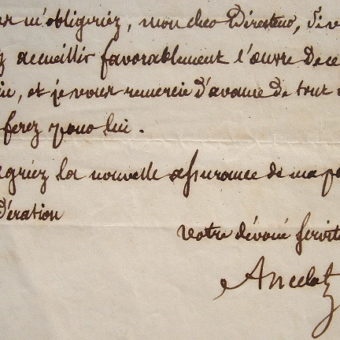 m'obligeriez, mon cher Directeur, si v
accueillir favorablement l'œuvre de ce
et je vous remercie d'avance de tout
ferez pour lui.
la nouvelle assurance de ma p
dération
votre dévoué servit
Ancelot